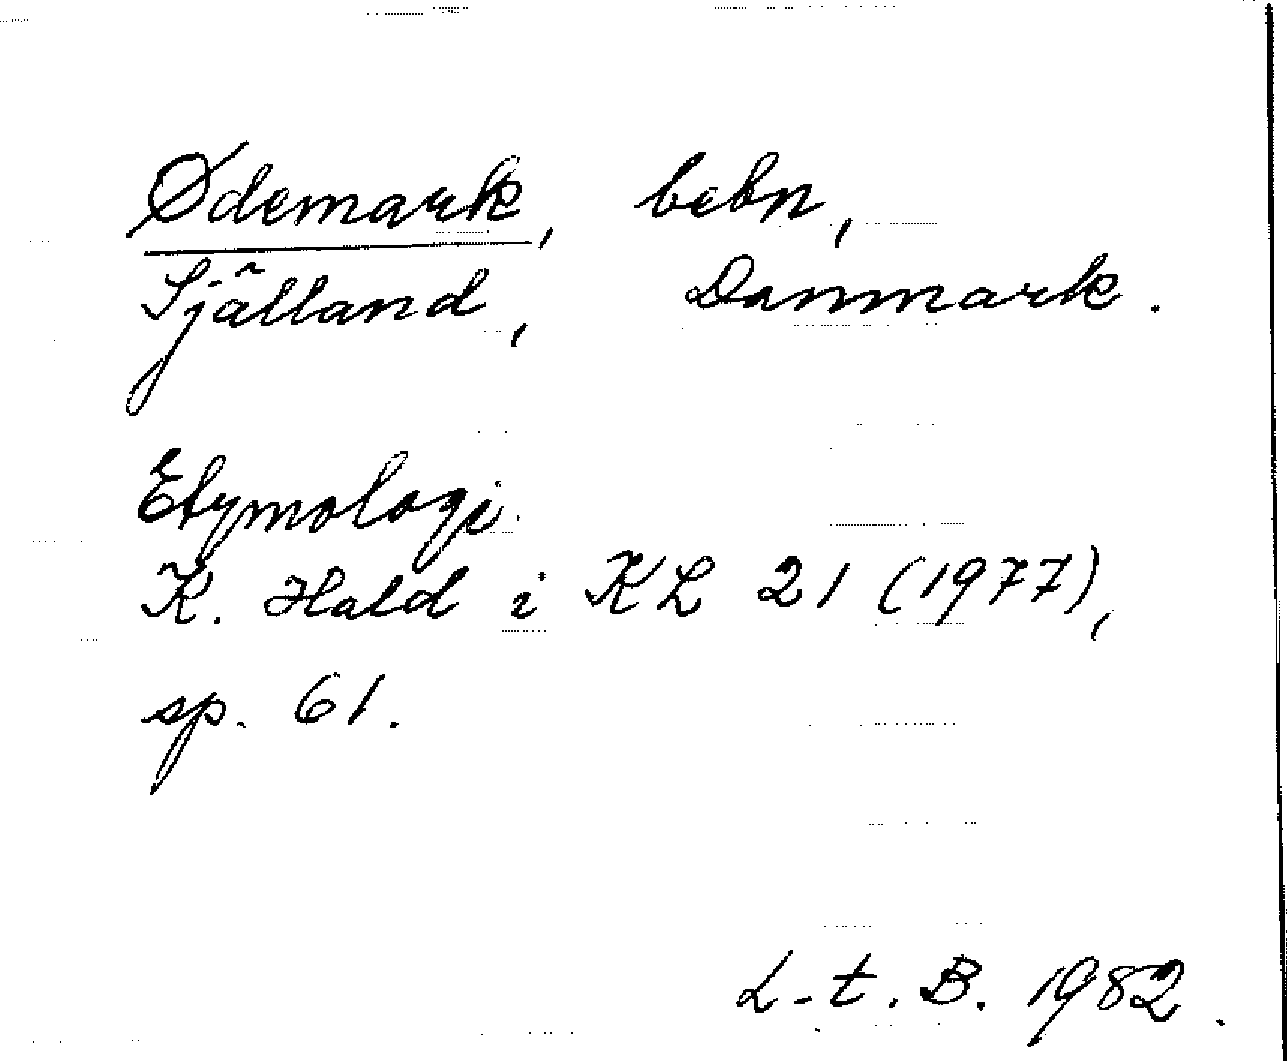 Ødemark, bebn,
Själland, Danmark.
Etymologi.
K. Hald i KL 21 (1977),
sp. 61.
L-t. B. 1982.